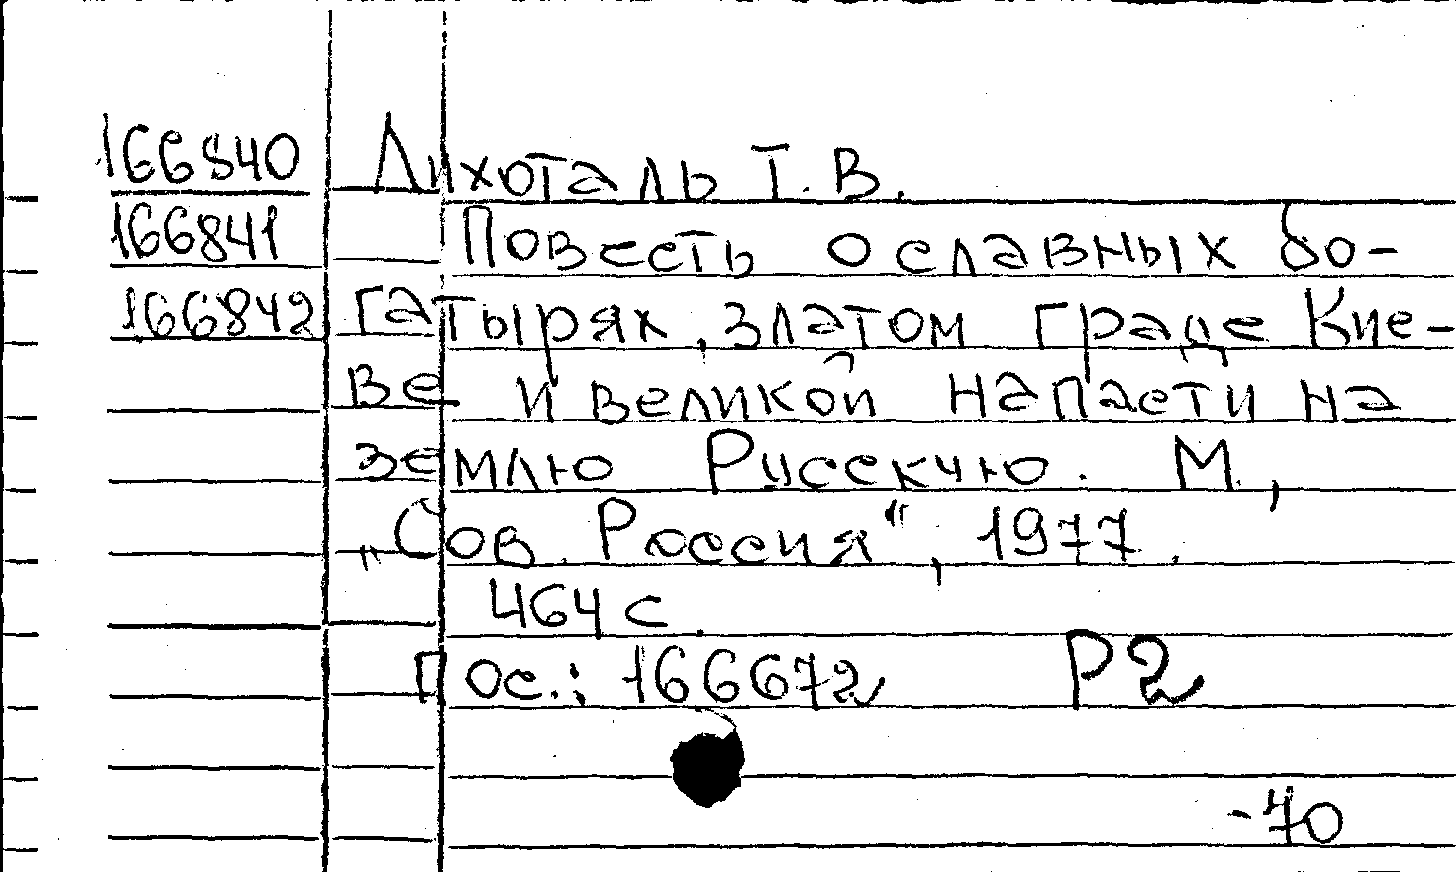 166840 Лихоталь Т. В.
166841 Повесть о славных бо-
166842 гатырях, златом граде Кие-
ве и великой напасти на
землю Русскую. М.,
„Сов. Россия“, 1977.
464 с.
Пос.: 166672 Р2
-70